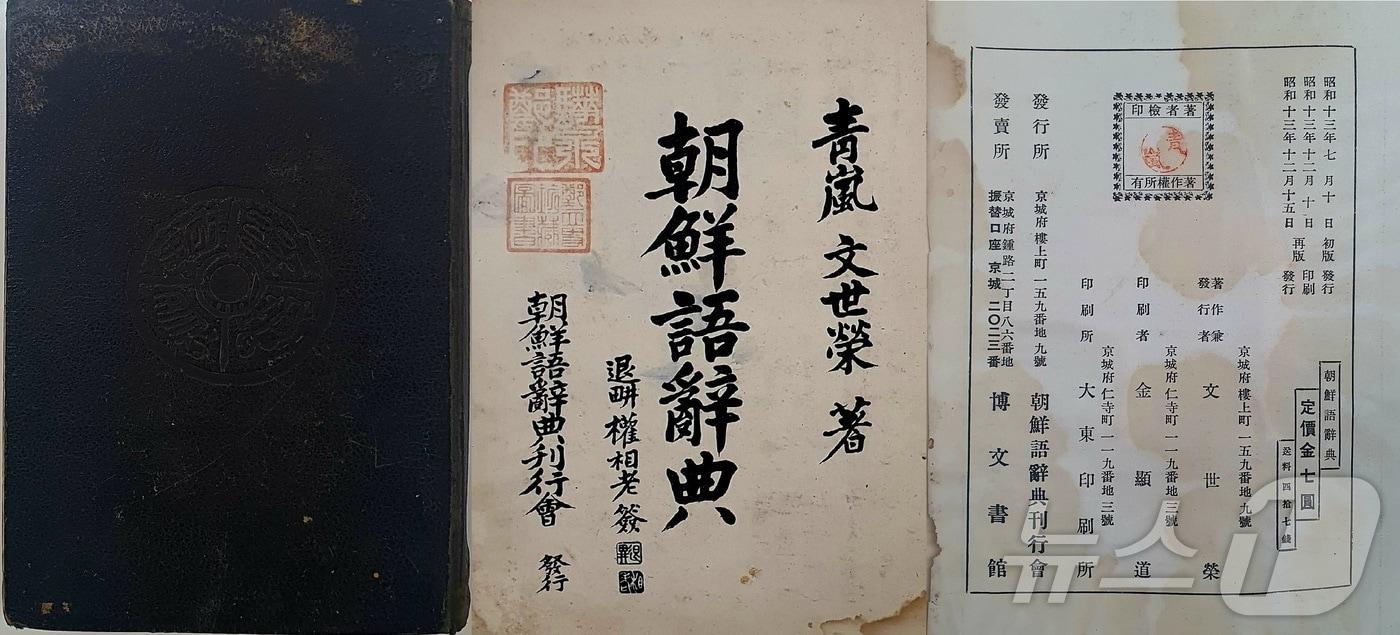 青嵐 文世榮 著
朝鮮語辭典
退畊 權相老 簽
朝鮮語辭典刊行會 發行
昭和十三年七月十日 初版 發行
昭和十三年十二月十日 再版 印刷
昭和十三年十二月十五日 再版 發行
朝鮮語辭典
定價金七圓
送料四拾七錢
著者檢印
著作權所有
京城府樓上町一五九番地九號
著作兼發行者 文世榮
京城府仁寺町一一九番地三號
印刷者 金顯道
京城府仁寺町一一九番地三號
印刷所 大東印刷所
京城府樓上町一五九番地九號
發行所 朝鮮語辭典刊行會
京城府鍾路二丁目八六番地
振替口座京城二〇二三番
發賣所 博文書館
뉴스1